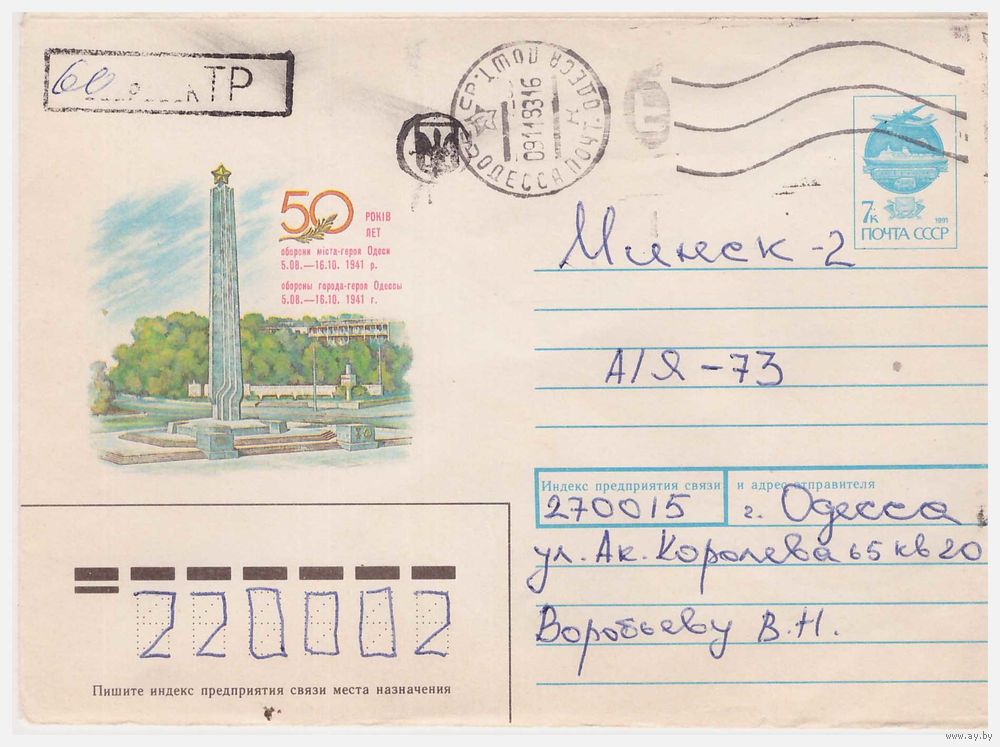 60
ТР
ОДЕСА ПОШТ.
091193 16
ОДЕССА ПОЧТ.
7к
1991
ПОЧТА СССР
50 РОКІВ
ЛЕТ
оборони міста-героя Одеси
5.08.—16.10. 1941 р.
обороны города-героя Одессы
5.08.—16.10. 1941 г.
Минск-2
А/Я-73
Индекс предприятия связи и адрес отправителя
270015 г. Одесса
ул. Ак. Королева 65 кв 20
Воробьеву В.Н.
220002
Пишите индекс предприятия связи места назначения
www.ay.by